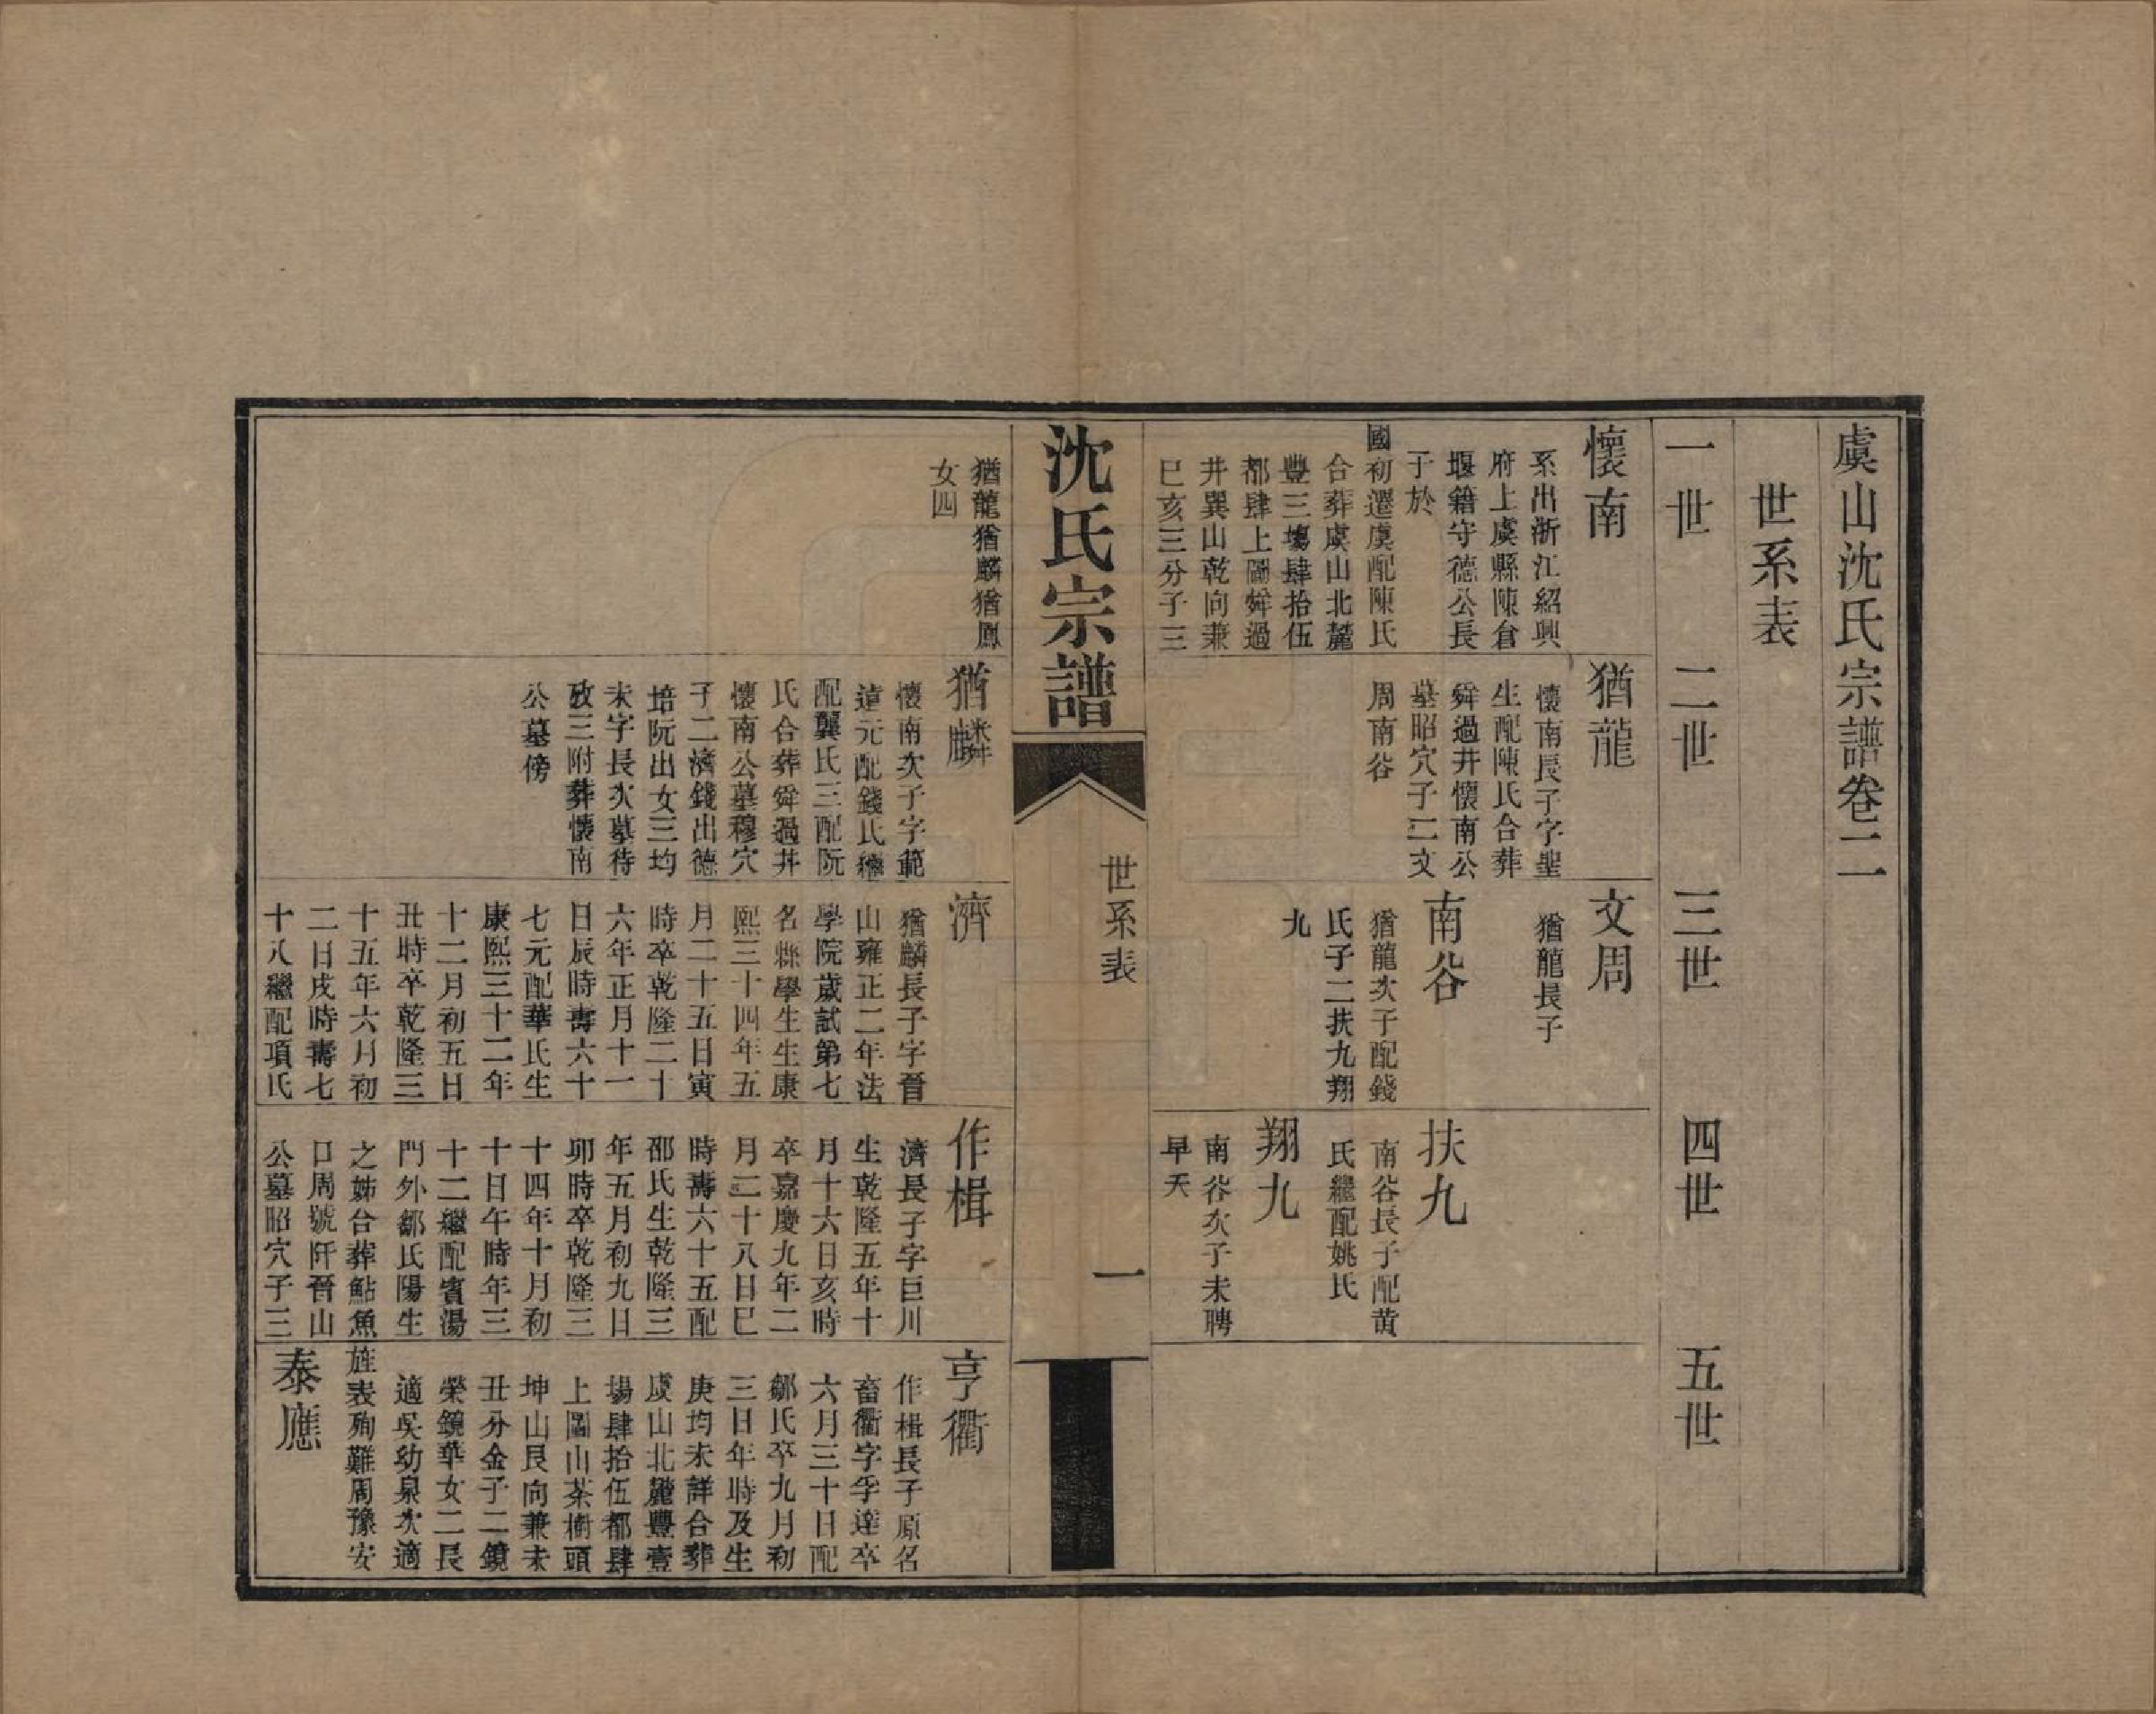 虞山沈氏宗譜卷二
世系表
一世
二世
三世
四世
五世
懷南
系出浙江紹興
府上虞縣陳倉
堰籍守德公長
子於
國初遷虞配陳氏
合葬虞山北麓
豐三塲肆拾伍
都肆上圖舜過
井巽山乾向兼
巳亥三分子三
猶龍
懷南長子字聖
生配陳氏合葬
舜過井懷南公
墓昭穴子二文
周南谷
文周
猶龍長子
南谷
猶龍次子配錢
氏子二扶九翔
九
扶九
南谷長子配黄
氏繼配姚氏
翔九
南谷次子未聘
早夭
沈氏宗譜
世系表
一
猶龍猶麟猶鳳
女四
猶麟
懷南次子字範
遠元配錢氏繼
配龔氏三配阮
氏合葬舜過井
懷南公墓穆穴
子二濟錢出德
培阮出女三均
未字長次墓待
攷三附葬懷南
公墓傍
濟
猶麟長子字晉
山雍正二年法
學院歲試第七
名縣學生生康
熙三十四年五
月二十五日寅
時卒乾隆二十
六年正月十一
日辰時壽六十
七元配華氏生
康熙三十二年
十二月初五日
丑時卒乾隆三
十五年六月初
二日戌時壽七
十八繼配項氏
作楫
濟長子字巨川
生乾隆五年十
月十六日亥時
卒嘉慶九年二
月二十八日巳
時壽六十五配
邵氏生乾隆三
年五月初九日
卯時卒乾隆三
十四年十月初
十日午時年三
十二繼配賓湯
門外鄒氏陽生
之姊合葬鮎魚
口周號阡晉山
公墓昭穴子三
亨衢
作楫長子原名
畜衢字孚逹卒
六月三十日配
鄒氏卒九月初
三日年時及生
庚均未詳合葬
虞山北麓豐壹
塲肆拾伍都肆
上圖山茶樹頭
坤山艮向兼未
丑分金子二鏡
榮鏡華女二長
適吳幼泉次適
旌表殉難周豫安
泰應